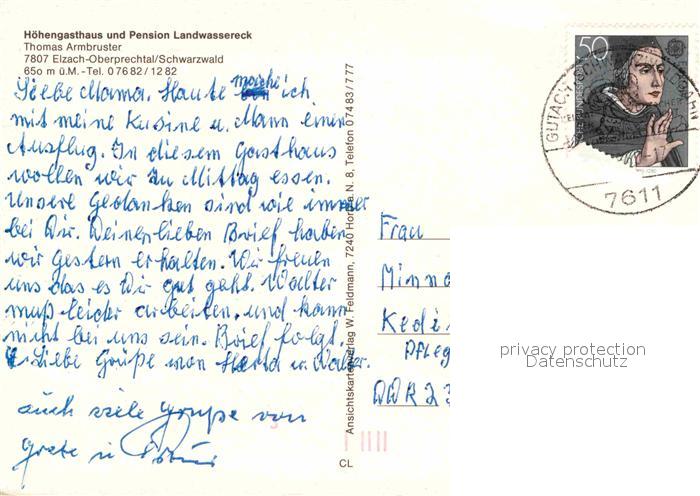 Höhengasthaus und Pension Landwassereck
Thomas Armbruster
7807 Elzach-Oberprechtal/Schwarzwald
650 m ü.M. - Tel. 0 76 82 / 12 82
Liebe Mama. Haute mache ich
mit meine Kusine u. Mann einen
Ausflug. In diesem Gasthaus
wollen wir zu Mittag essen.
Unsere Gedanken sind wie immer
bei Dir. Deinen lieben Brief haben
wir gestern erhalten. Wir freuen
uns das es Dir gut geht. Walter
muß leider arbeiten, und kann
nicht bei uns sein. Brief folgt.
Liebe Grüße von Herta u. Walter.
auch viele Grüße von
Grete u.
CL
Ansichtskartenverlag W. Feldmann, 7240 Horb a. N. 8, Telefon 07483/777
50
GUTACH
7611
Frau
Minna
Kedi
Pfleg
DDR 23
privacy protection
Datenschutz